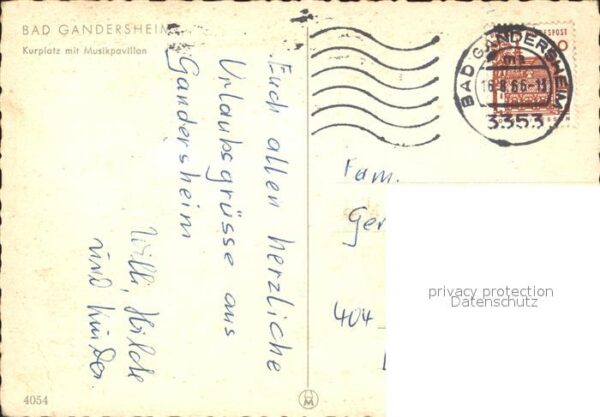 BAD GANDERSHEIM
Kurplatz mit Musikpavillon
Euch allen herzliche
Urlaubsgrüsse aus
Gandersheim
Willi, Hilde
und Kinder.
4054
BAD GANDERSHEIM
16.8.66-11
3353
Fam.
Ger
404
privacy protection
Datenschutz